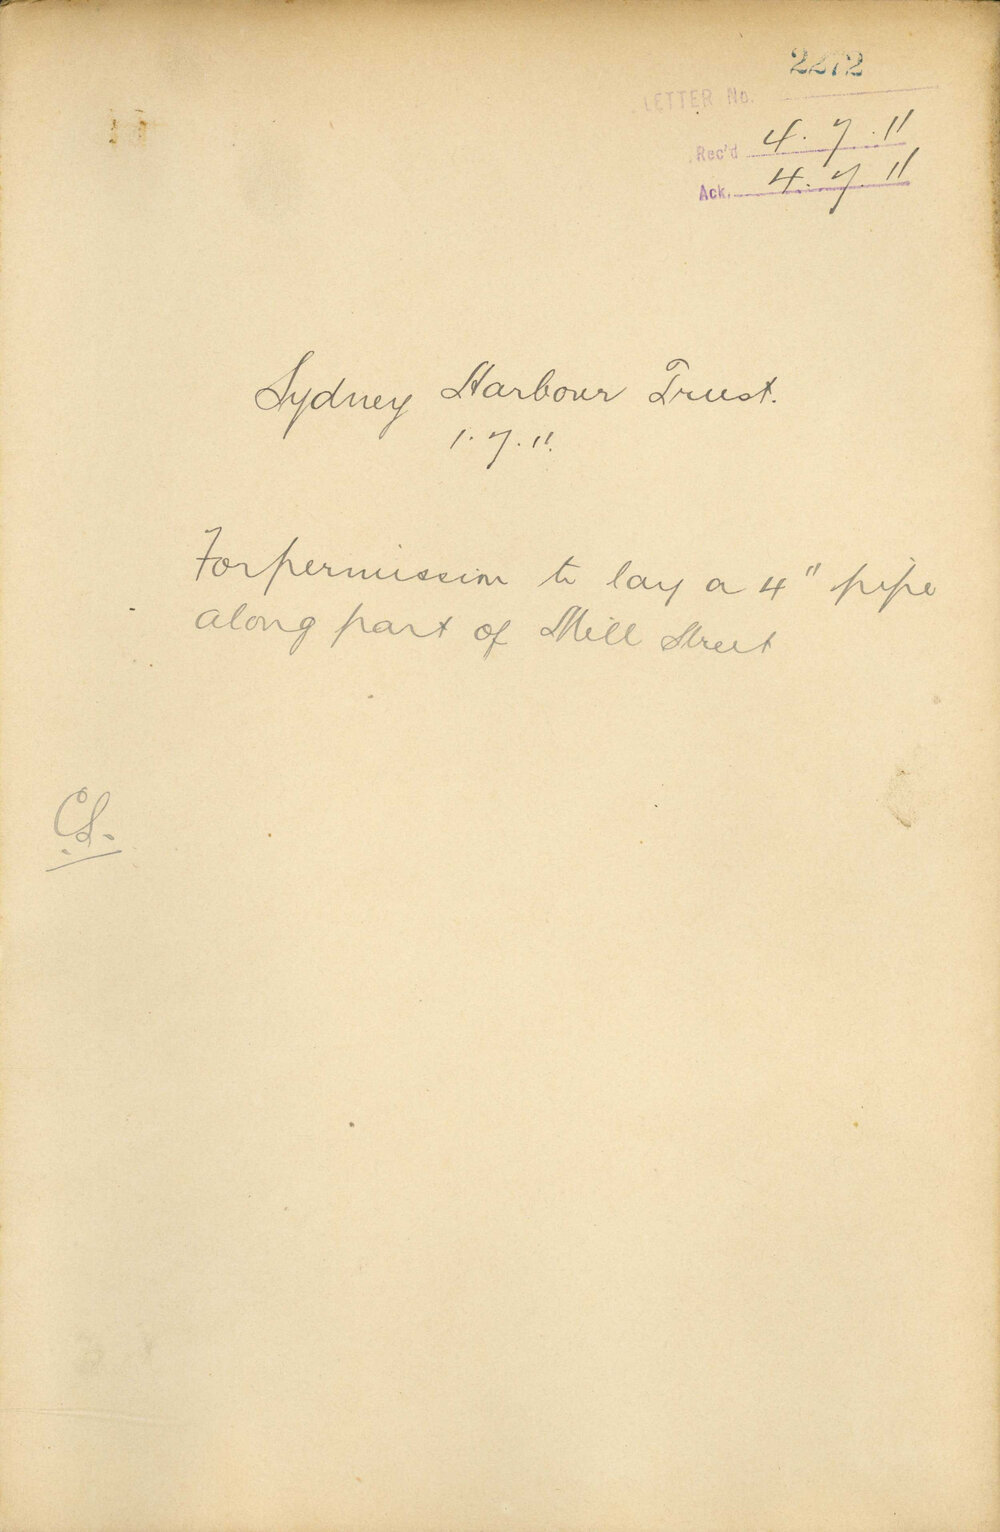 2272
LETTER No.
Rec'd 4.7.11
Ack. 4.7.11
Sydney Harbour Trust.
1.7.11.
For permission to lay a 4" pipe
along part of Mill Street
C.S.